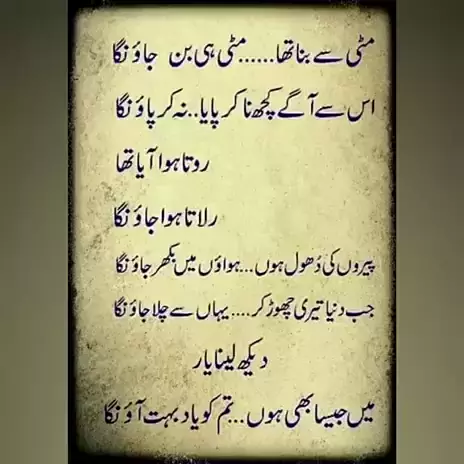 مٹی سے بنا تھا......مٹی ہی بن جاؤنگا
اس سے آگے کچھ نا کر پایا..نہ کر پاؤنگا
روتا ہوا آیا تھا
رلاتا ہوا جاؤنگا
پیروں کی دُھول ہوں...ہواؤں میں بکھر جاؤنگا
جب دنیا تیری چھوڑ کر....یہاں سے چلا جاؤنگا
دیکھ لینا یار
میں جیسا بھی ہوں...تم کو یاد بہت آؤنگا